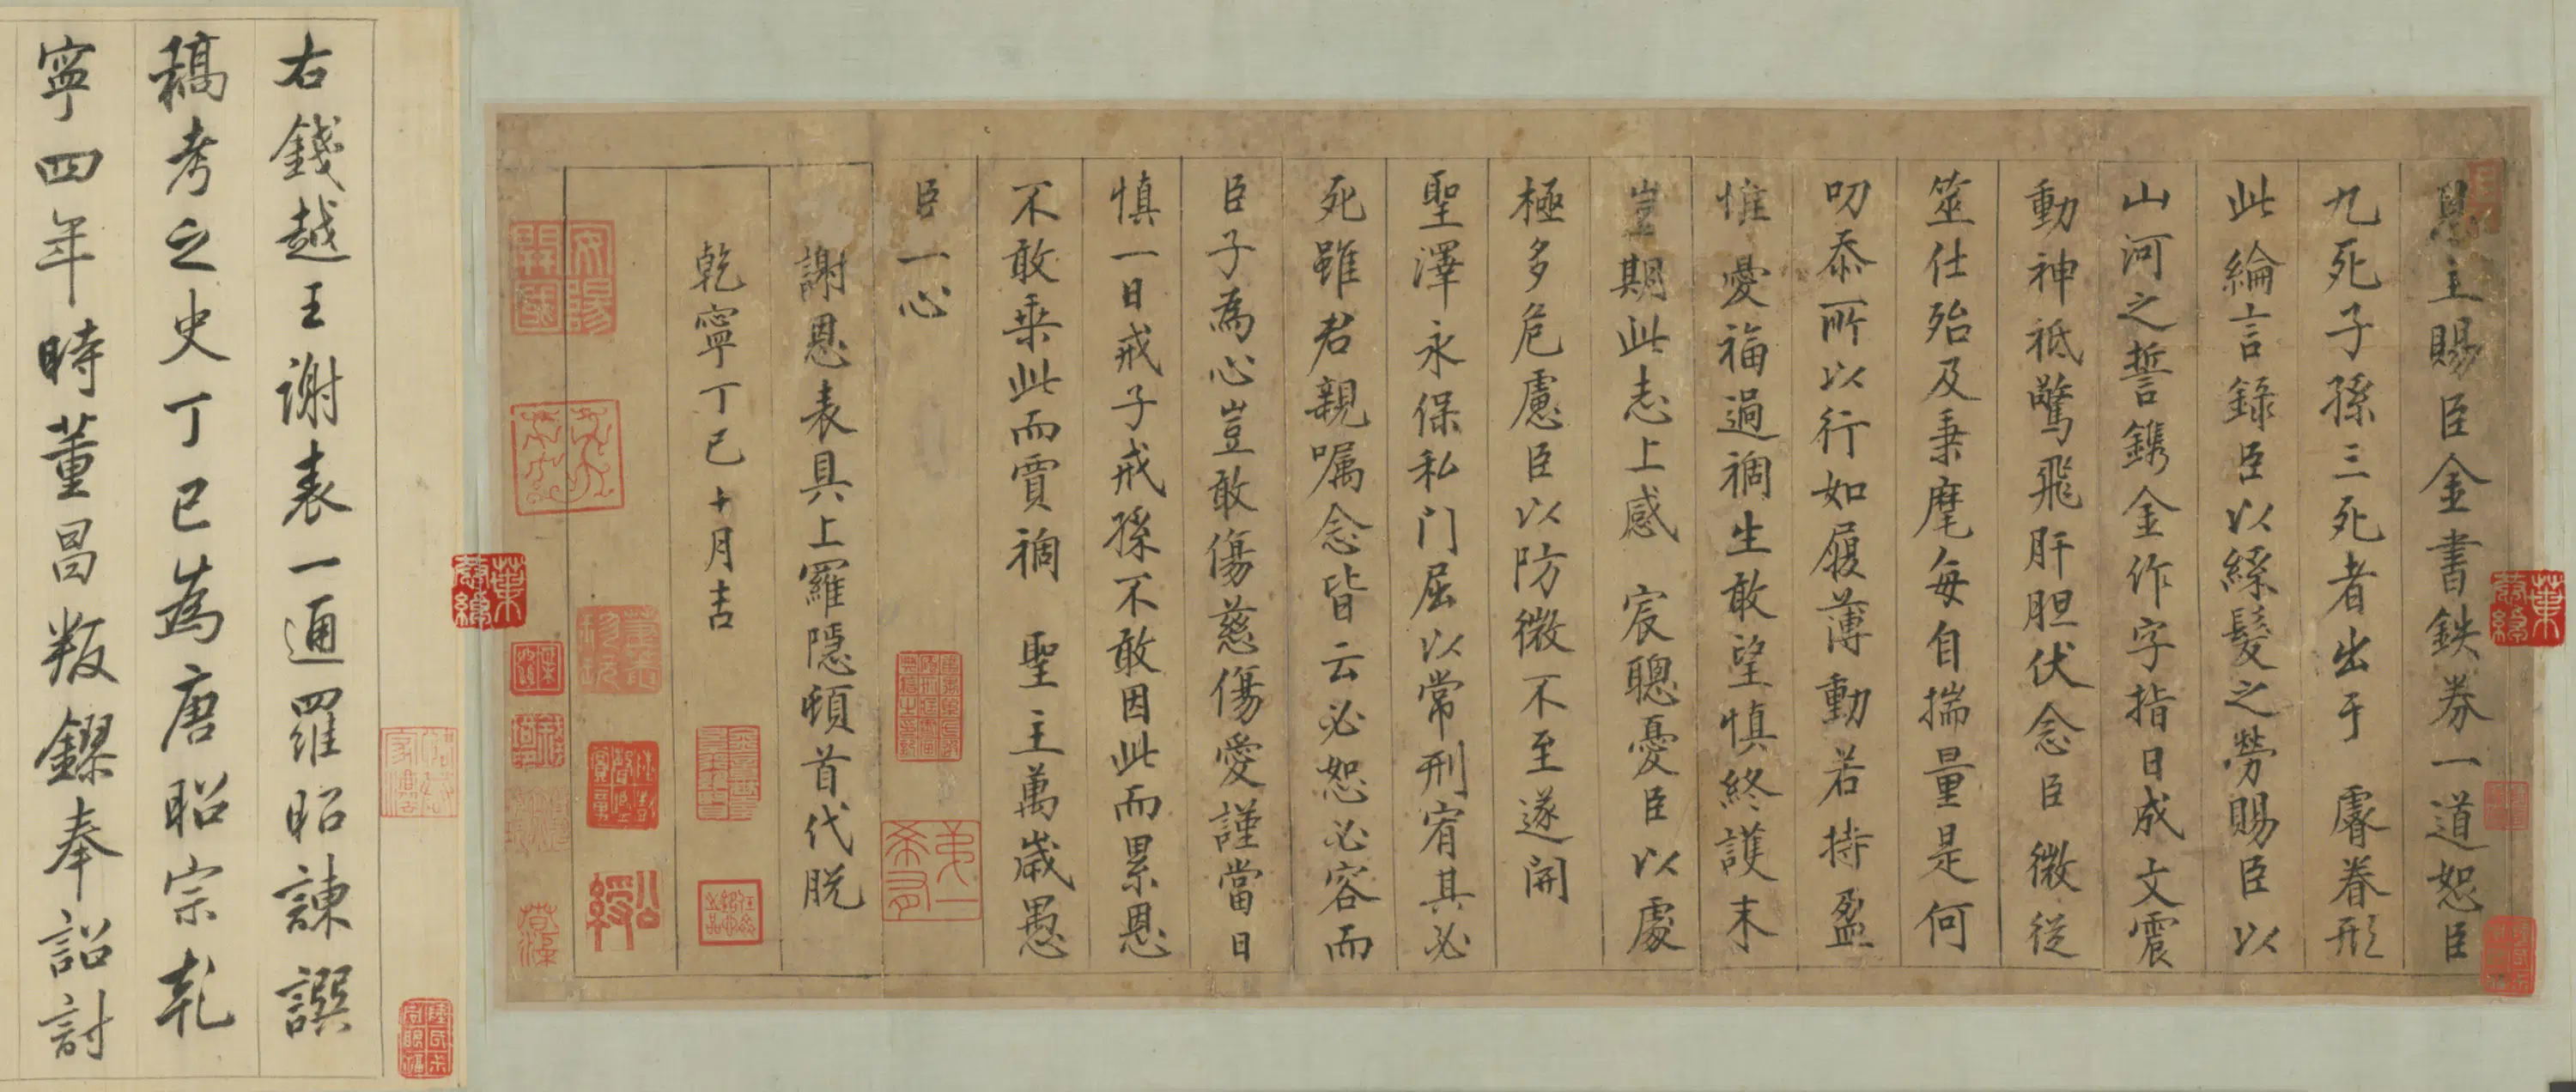 恩主賜臣金書鉄券一道恕臣
九死子孫三死者出于 睿眷形
此綸言錄臣以絲髮之勞賜臣以
山河之誓鐫金作字指日成文震
動神祇驚飛肝胆伏念臣微從
筮仕殆及秉麾每自揣量是何
叨忝所以行如履薄動若持盈
惟憂福過禍生敢望慎終護末
豈期此志上感 宸聰憂臣以處
極多危慮臣以防微不至遂開
聖澤永保私门屈以常刑宥其必
死雖君親囑念皆云必恕必容而
臣子為心豈敢傷慈傷愛謹當日
慎一日戒子戒孫不敢因此而累恩
不敢乗此而賈禍 聖主萬歲愚
臣一心
謝恩表具上羅隠頓首代脱
乾寧丁巳十月吉
右錢越王謝表一通羅昭諫譔
稿考之史丁巳為唐昭宗乾
寧四年時董昌叛鏐奉詔討